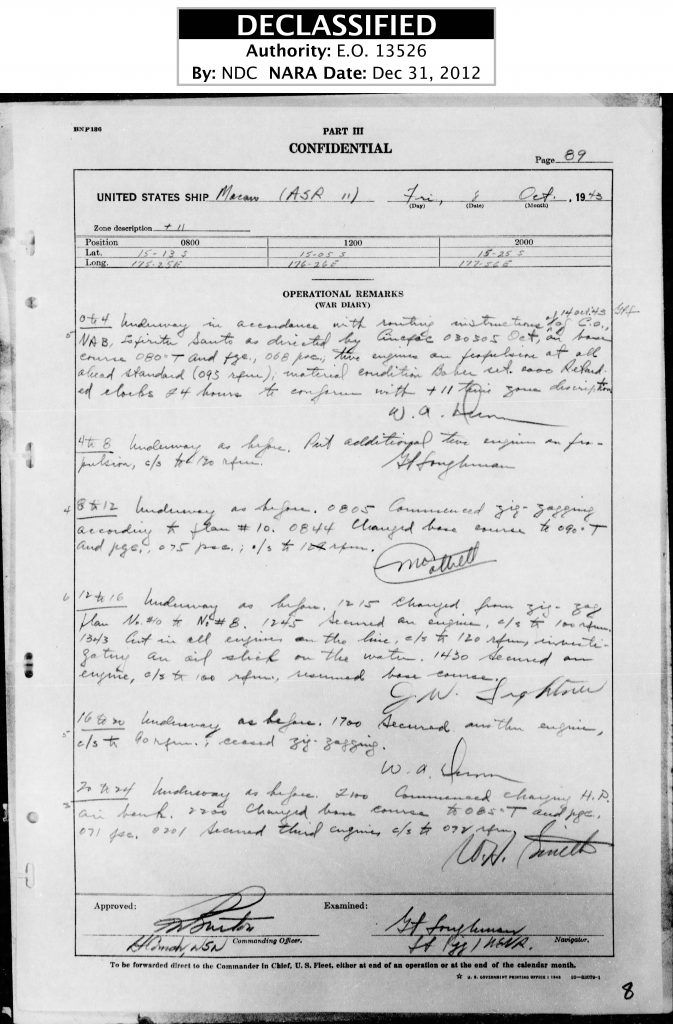 DECLASSIFIED
Authority: E.O. 13526
By: NDC NARA Date: Dec 31, 2012
BNP186
PART III
CONFIDENTIAL
Page 89
UNITED STATES SHIP Macaw (ASR 11) Fri, 8 Oct. , 1943
(Day) (Date) (Month)
Zone description + 11
Position 0800 1200 2000
Lat. 15-13 S 15-05 S 15-25 S
Long. 175-25E 176-26E 177-56E
OPERATIONAL REMARKS
(WAR DIARY)
14 Oct. 43
0 to 4 Underway in accordance with routing instructions of C.O.,
NAB, Espiritu Santo as directed by Cincpac 030305 Oct, on base
course 080°T and pgc., 068 psc., two engines on propulsion at all
ahead standard (093 rpm); material condition Baker set. 0000 Retard-
ed clocks 24 hours to conform with +11 time zone description
W. A. Dunn
4 to 8 Underway as before. Put additional two engines on pro-
pulsion, c/s to 120 rpm.
Loughman
8 to 12 Underway as before. 0805 Commenced zig-zagging
according to plan #10. 0844 Changed base course to 090°T
and pgc., 075 psc.; c/s to rpm.
12 to 16 Underway as before. 1215 Changed from zig-zag
plan No. #10 to No # 8. 1245 Secured an engine, c/s to 100 rpm.
1343 Cut in all engines on the line, c/s to 120 rpm, investi-
gating an oil slick on the water. 1430 Secured an
engine, c/s to 100 rpm, resumed base course.
G. W.
16 to 20 Underway as before. 1700 Secured another engine,
c/s to 90 rpm.; ceased zig-zagging.
W. A. Dunn
20 to 24 Underway as before. 2100 Commenced charging H.P.
air bank. 2200 Changed base course to 085°T and pgc.
071 psc. 0201 Secured third engine, c/s to 078 rpm
W. H. Smith
Approved: Examined:
Burton Loughman
USN Commanding Officer. Lt (jg) USNR. Navigator.
To be forwarded direct to the Commander in Chief, U. S. Fleet, either at end of an operation or at the end of the calendar month.
☆ U. S. GOVERNMENT PRINTING OFFICE : 1943
8